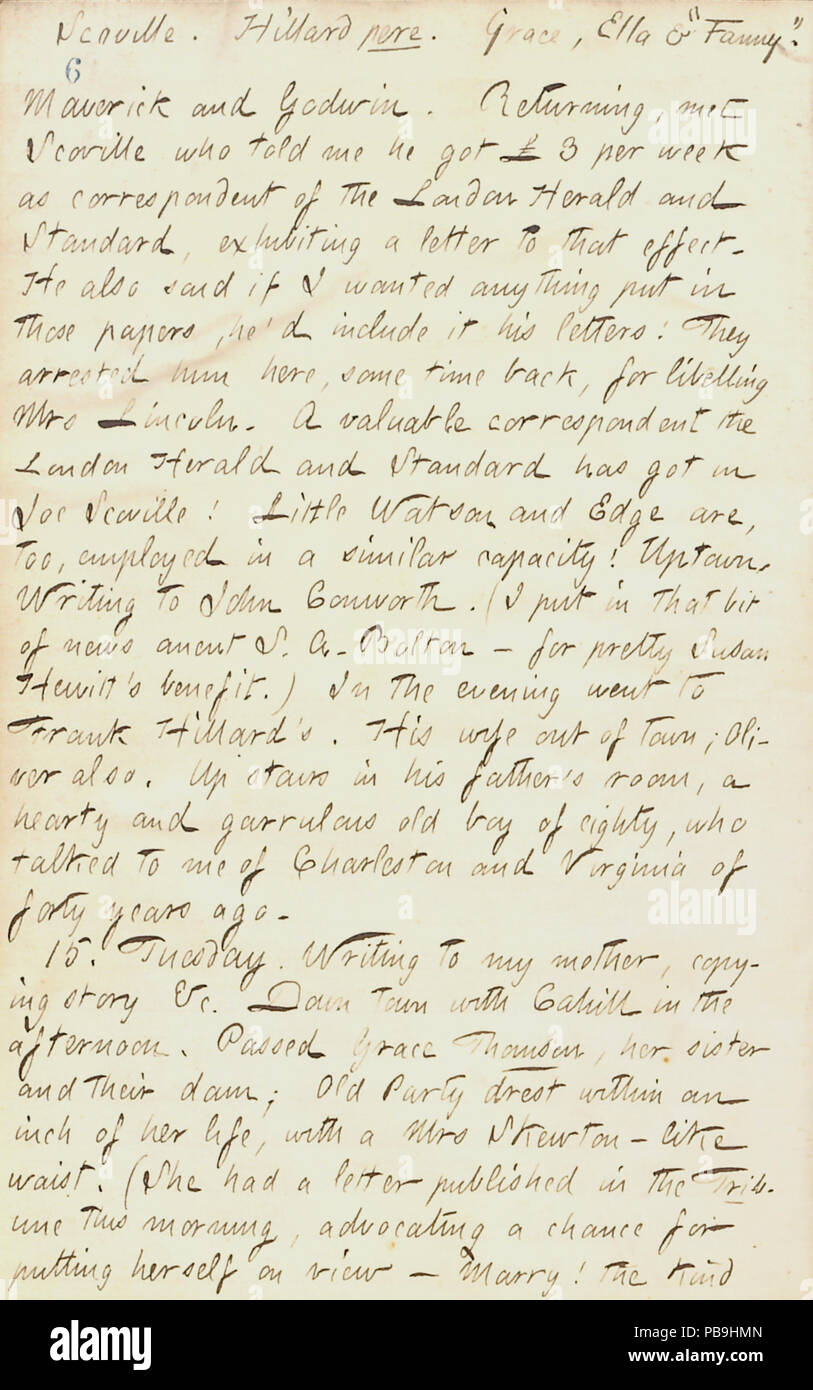 Scoville. Hillard pere. Grace, Ella & "Fanny".
6
Maverick and Godwin. Returning, met
Scoville who told me he got £ 3 per week
as correspondent of the London Herald and
Standard, exhibiting a letter to that effect.
He also said if I wanted anything put in
those papers, he'd include it his letters! They
arrested him here, some time back, for libelling
Mrs Lincoln. A valuable correspondent the
London Herald and Standard has got in
Joe Scoville! Little Watson and Edge are,
too, employed in a similar capacity! Uptown.
Writing to John Conworth. (I put in that bit
of news anent S. A. Bolton — for pretty Susan
Hewitt's benefit.) In the evening went to
Frank Hillard's. His wife out of town; Oli-
ver also. Up stairs in his father's room, a
hearty and garrulous old boy of eighty, who
talked to me of Charleston and Virginia of
forty years ago.
15. Tuesday. Writing to my mother, copy-
ing story &c. Down town with Cahill in the
afternoon. Passed Grace Thomson, her sister
and their dam; Old Party drest within an
inch of her life, with a Mrs Skewton-like
waist. (She had a letter published in the Trib-
une this morning, advocating a chance for
putting herself on view — Marry! the kind
alamy
alamy
Image ID: PB9HMN
www.alamy.com